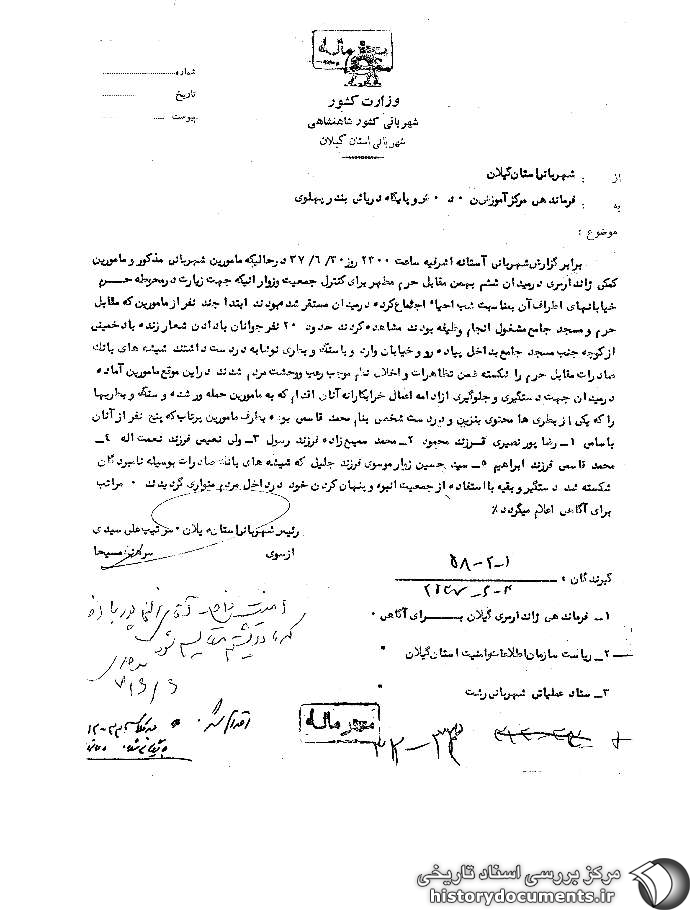 محرمانه
وزارت کشور
شهربانی کشور شاهنشاهی
شهربانی استان گیلان
شماره
تاریخ
پیوست
از : شهربانی استان گیلان
به : فرماندهی مرکز آموزش ن ۰ د ۰ ش و پایگاه دریائی بندر پهلوی
موضوع :
برابر گزارش شهربانی آستانه اشرفیه ساعت ۲۳۰۰ روز ۳۰/ ۶/ ۳۷ درحالیکه مامورین شهربانی مذکور و مامورین
کمکی ژاندارمری درمیدان ششم بهمن مقابل حرم مطهر برای کنترل جمعیت وزوار انیکه جهت زیارت درمحوطه حرم
خیابانهای اطراف آن بمناسبت شب احیاء اجتماع کرده درمیدان مستقر شده بودند ابتدا چند نفر از مامورین که مقابل
حرم و مسجد جامع مشغول انجام وظیفه بودند مشاهده کردند حدود ۲۰ نفر جوانان بادادن شعار زنده باد خمینی
از کوچه جنب مسجد جامع بداخل پیاده رو و خیابان وارد و باسنگ و بطری نوشابه دردست داشتند شیشه های بانک
صادرات مقابل حرم را شکسته ضمن تظاهرات و اخلال نظم موجب رعب ووحشت مردم شدند دراین موقع مامورین آماده
درمیدان جهت دستگیری و جلوگیری ازادامه اعمال خرابکارانه آنان اقدام که به مامورین حمله ور شده و سنگ و بطریها
را که یکی از بطری ها محتوی بنزین و دردست شخصی بنام محمد قاسمی بوده بطرف مامورین پرتاب که پنج نفر از آنان
باسامی ۱ـ رضا پور نصیری فرزند محمود ۲ـ محمد سمیع زاده فرزند رسول ۳ـ ولی نعیمی فرزند نعمت اله ۴ـ
محمد قاسمی فرزند ابراهیم ۵ـ سید حسین زوار موسوی فرزند جلیل که شیشه های بانک صادرات بوسیله نامبردگان
شکسته شد دستگیر و بقیه با استفاده از جمعیت انبوه و پنهان کردن خود درداخل مردم متواری گردیدند ۰ مراتب
برای آگاهی اعلام میگردد ٪
رئیس شهربانی استان گیلان ۰ سرتیپ علی سیدی
ازسوی
گیرندگان :
۱ـ فرماندهی ژاندارمری گیلان بـرای آگاهی ۰
۲ـ ریاست سازمان اطلاعات وامنیت استان گیلان ۰
۳ـ ستاد عملیاتی شهربانی رشت ۰
محرمانه
۳۳-۳۲
مرکز بررسی اسناد تاریخی
historydocuments.ir